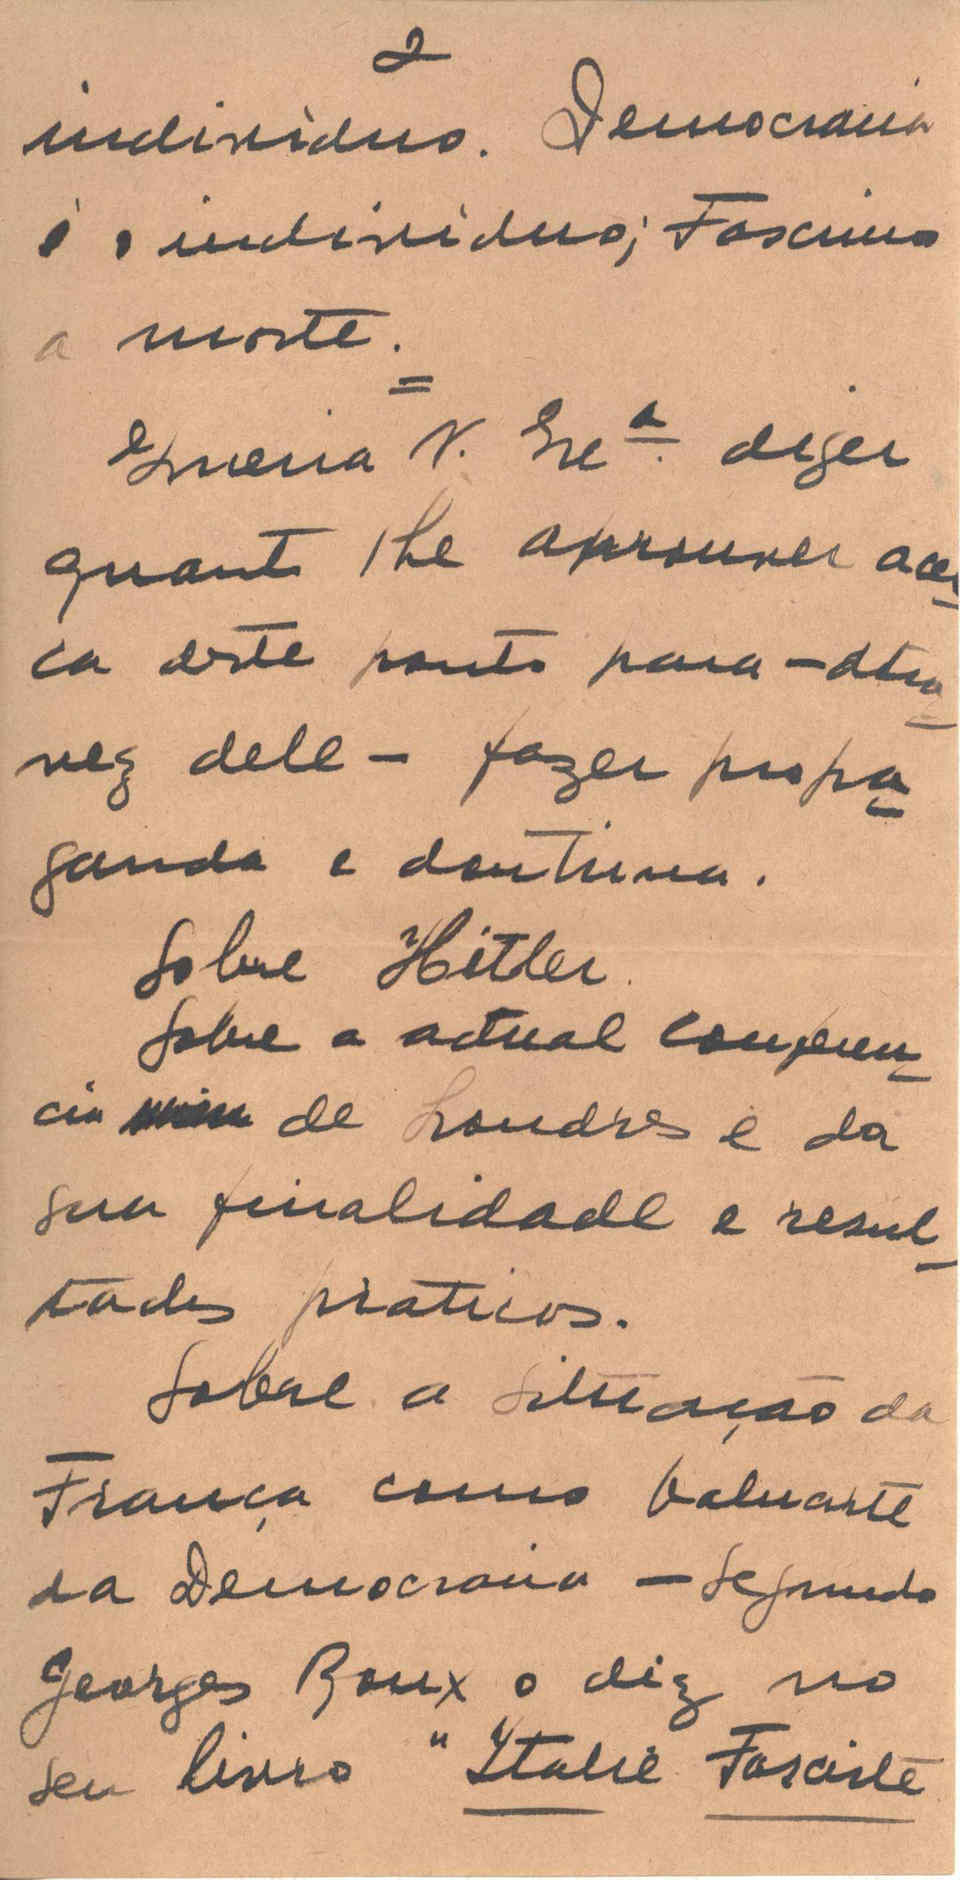 2
individuo. Democracia
é o individuo; Fascismo
a morte.
Queria V. Exª. dizer
quanto lhe aprouver acer-
ca deste ponto para – atra-
vez delle – fazer propa-
ganda e doutrina.
Sobre Hitler.
Sobre a actual conferen-
cia de Londres e da
sua finalidade e resul-
tados praticos.
Sobre a situação da
França como baluarte
da Democracia – segundo
Georges Roux o diz no
seu livro "Italie Fasciste